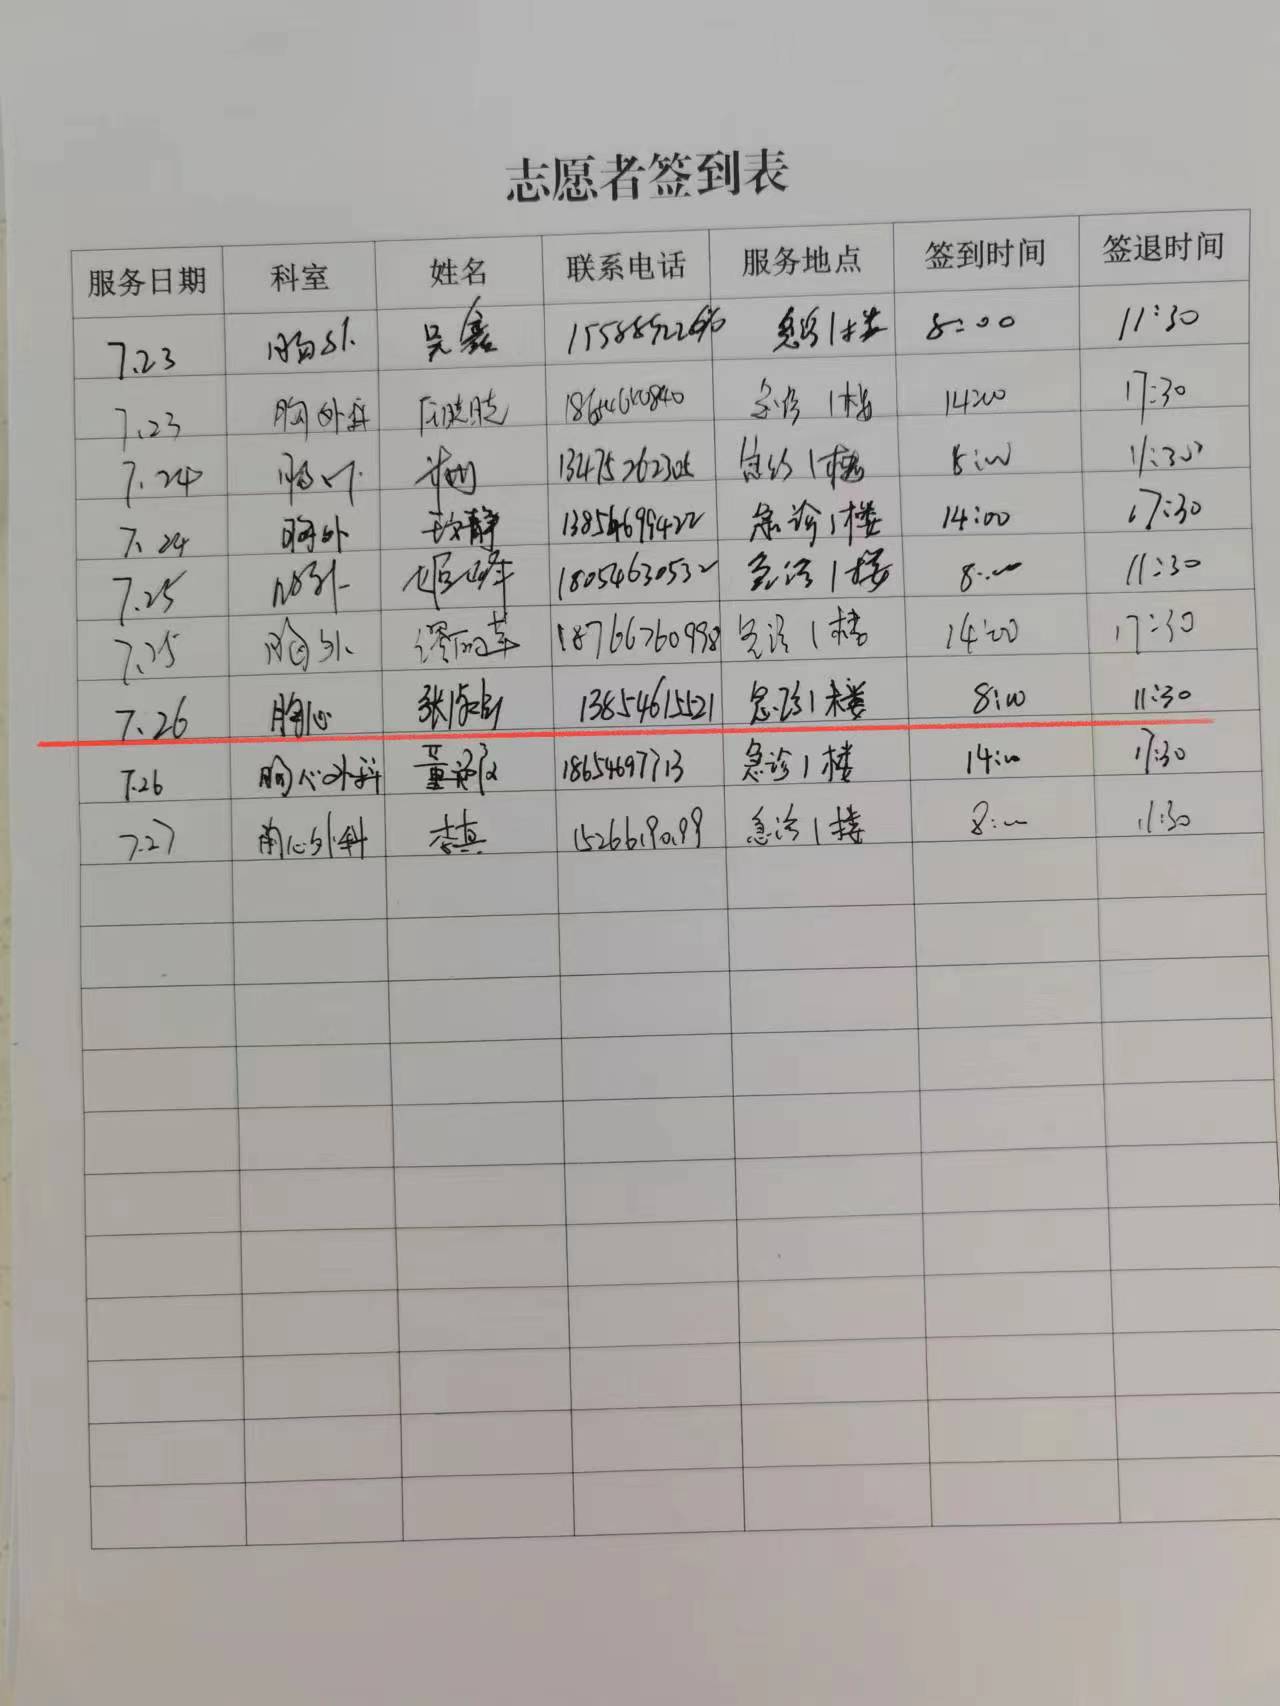 志愿者签到表
服务日期 科室 姓名 联系电话 服务地点 签到时间 签退时间
7.23 胸外 吴 急诊1楼 8:00 11:30
7.23 胸外科 急诊1楼 14:00 17:30
7.24 胸外 13475262305 急诊1楼 8:00 11:30
7.24 胸外 静 13854699422 急诊1楼 14:00 17:30
7.25 胸外 18054630532 急诊1楼 8:00 11:30
7.25 胸外 18766760998 急诊1楼 14:00 17:30
7.26 胸心 张 13854615521 急诊1楼 8:00 11:30
7.26 胸心外科 董 18654697713 急诊1楼 14:00 17:30
7.27 胸心外科 李真 急诊1楼 8:00 11:30